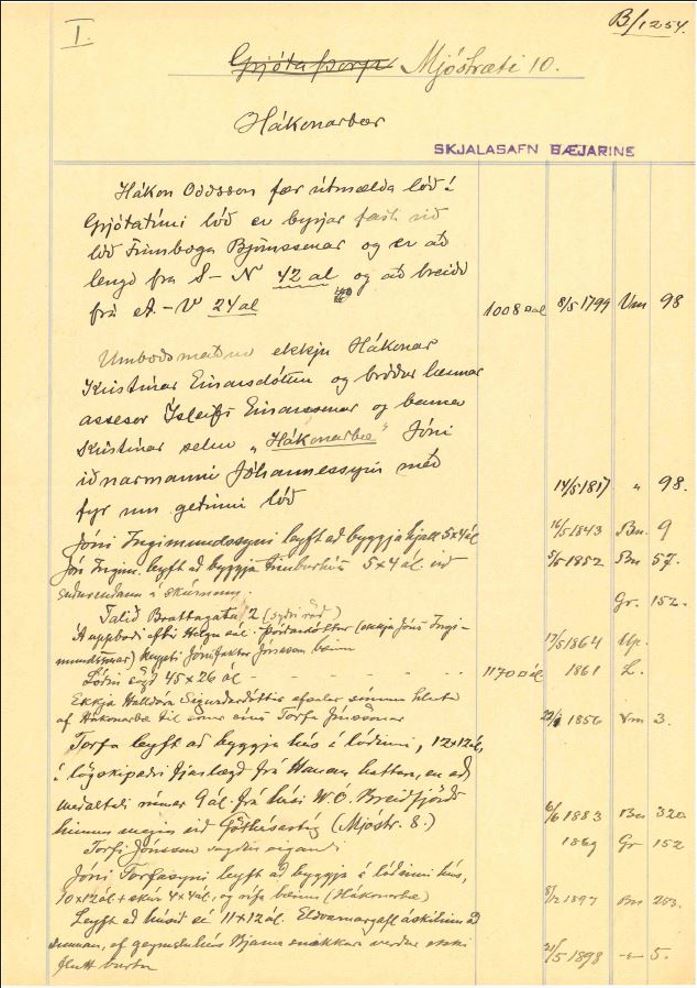 I.
B/1254.
Grjótaþorp Mjóstræti 10.
Hákonarbær
SKJALASAFN BÆJARINS
Hákon Oddsson fær útmælda lóð í
Grjótatúni lóð er byrjar fast við
lóð Finnboga Björnssonar og er að
lengd frá S - N 42 al og að breidd
frá A. - V 24 al 1008 □al 8/5 1799 Vm 98
Umboðsmaður ekkju Hákonar
Kristínar Einarsdóttur og bróður hennar
assesor Ísleifs Einarssonar og hennar
Kristínar selur „Hákonarbæ" Jóni
iðnarmanni Jóhannessyni með
fyr um getinni lóð 14/5 1817 " 98.
Jóni Ingimundssyni leyft að byggja hjall 5x4 ál 16/5 1843 Bn. 9
Jóni Ingim. leyft að byggja timburhús 5x4 ál. við 5/5 1852 Bn 57.
suðurendann á skúrnum. Gr. 152.
Talið Brattagata 2 (syðri röð)
Á uppboði eftir Helgu sál. Þórðardóttur (ekkja Jóns Ingi-
mundssonar) keypti Jón faktor Jónsson bæinn 17/5 1864 Up.
Lóðin sögð 45 x 26 ál - - - - - 1170 □ál 1861 L.
Ekkja Halldóra Sigurðardóttir afsalar sínum hluta
af Hákonarbæ til sonar síns Torfa Jónssonar 1856 Vm 3.
Torfa leyft að byggja hús á lóðinni, 12x12 ál,
í lögskipaðri fjarlægð frá Hannesi hattara, en að
meðaltali nemur 9 ál. frá húsi W. Ó. Breiðfjörðs
hinum megin við Götuhússtíg (Mjóstr. 8.) 6/6 1883 Bn 320
Torfi Jónsson sagður eigandi 1889 Gr 152
Jóni Torfasyni leyft að byggja á lóðinni hús,
10x12 ál + skúr 4x4 ál, og rífa bæinn (Hákonarbæ) 8/12 1897 Bn 283.
Leyft að húsið sé 11x12 ál. Eldvarnargafl áskilinn að
sunnan, ef geymsluhús Bjarna snikkara verður ekki
flutt burtu 21/5 1898 -"- 5.